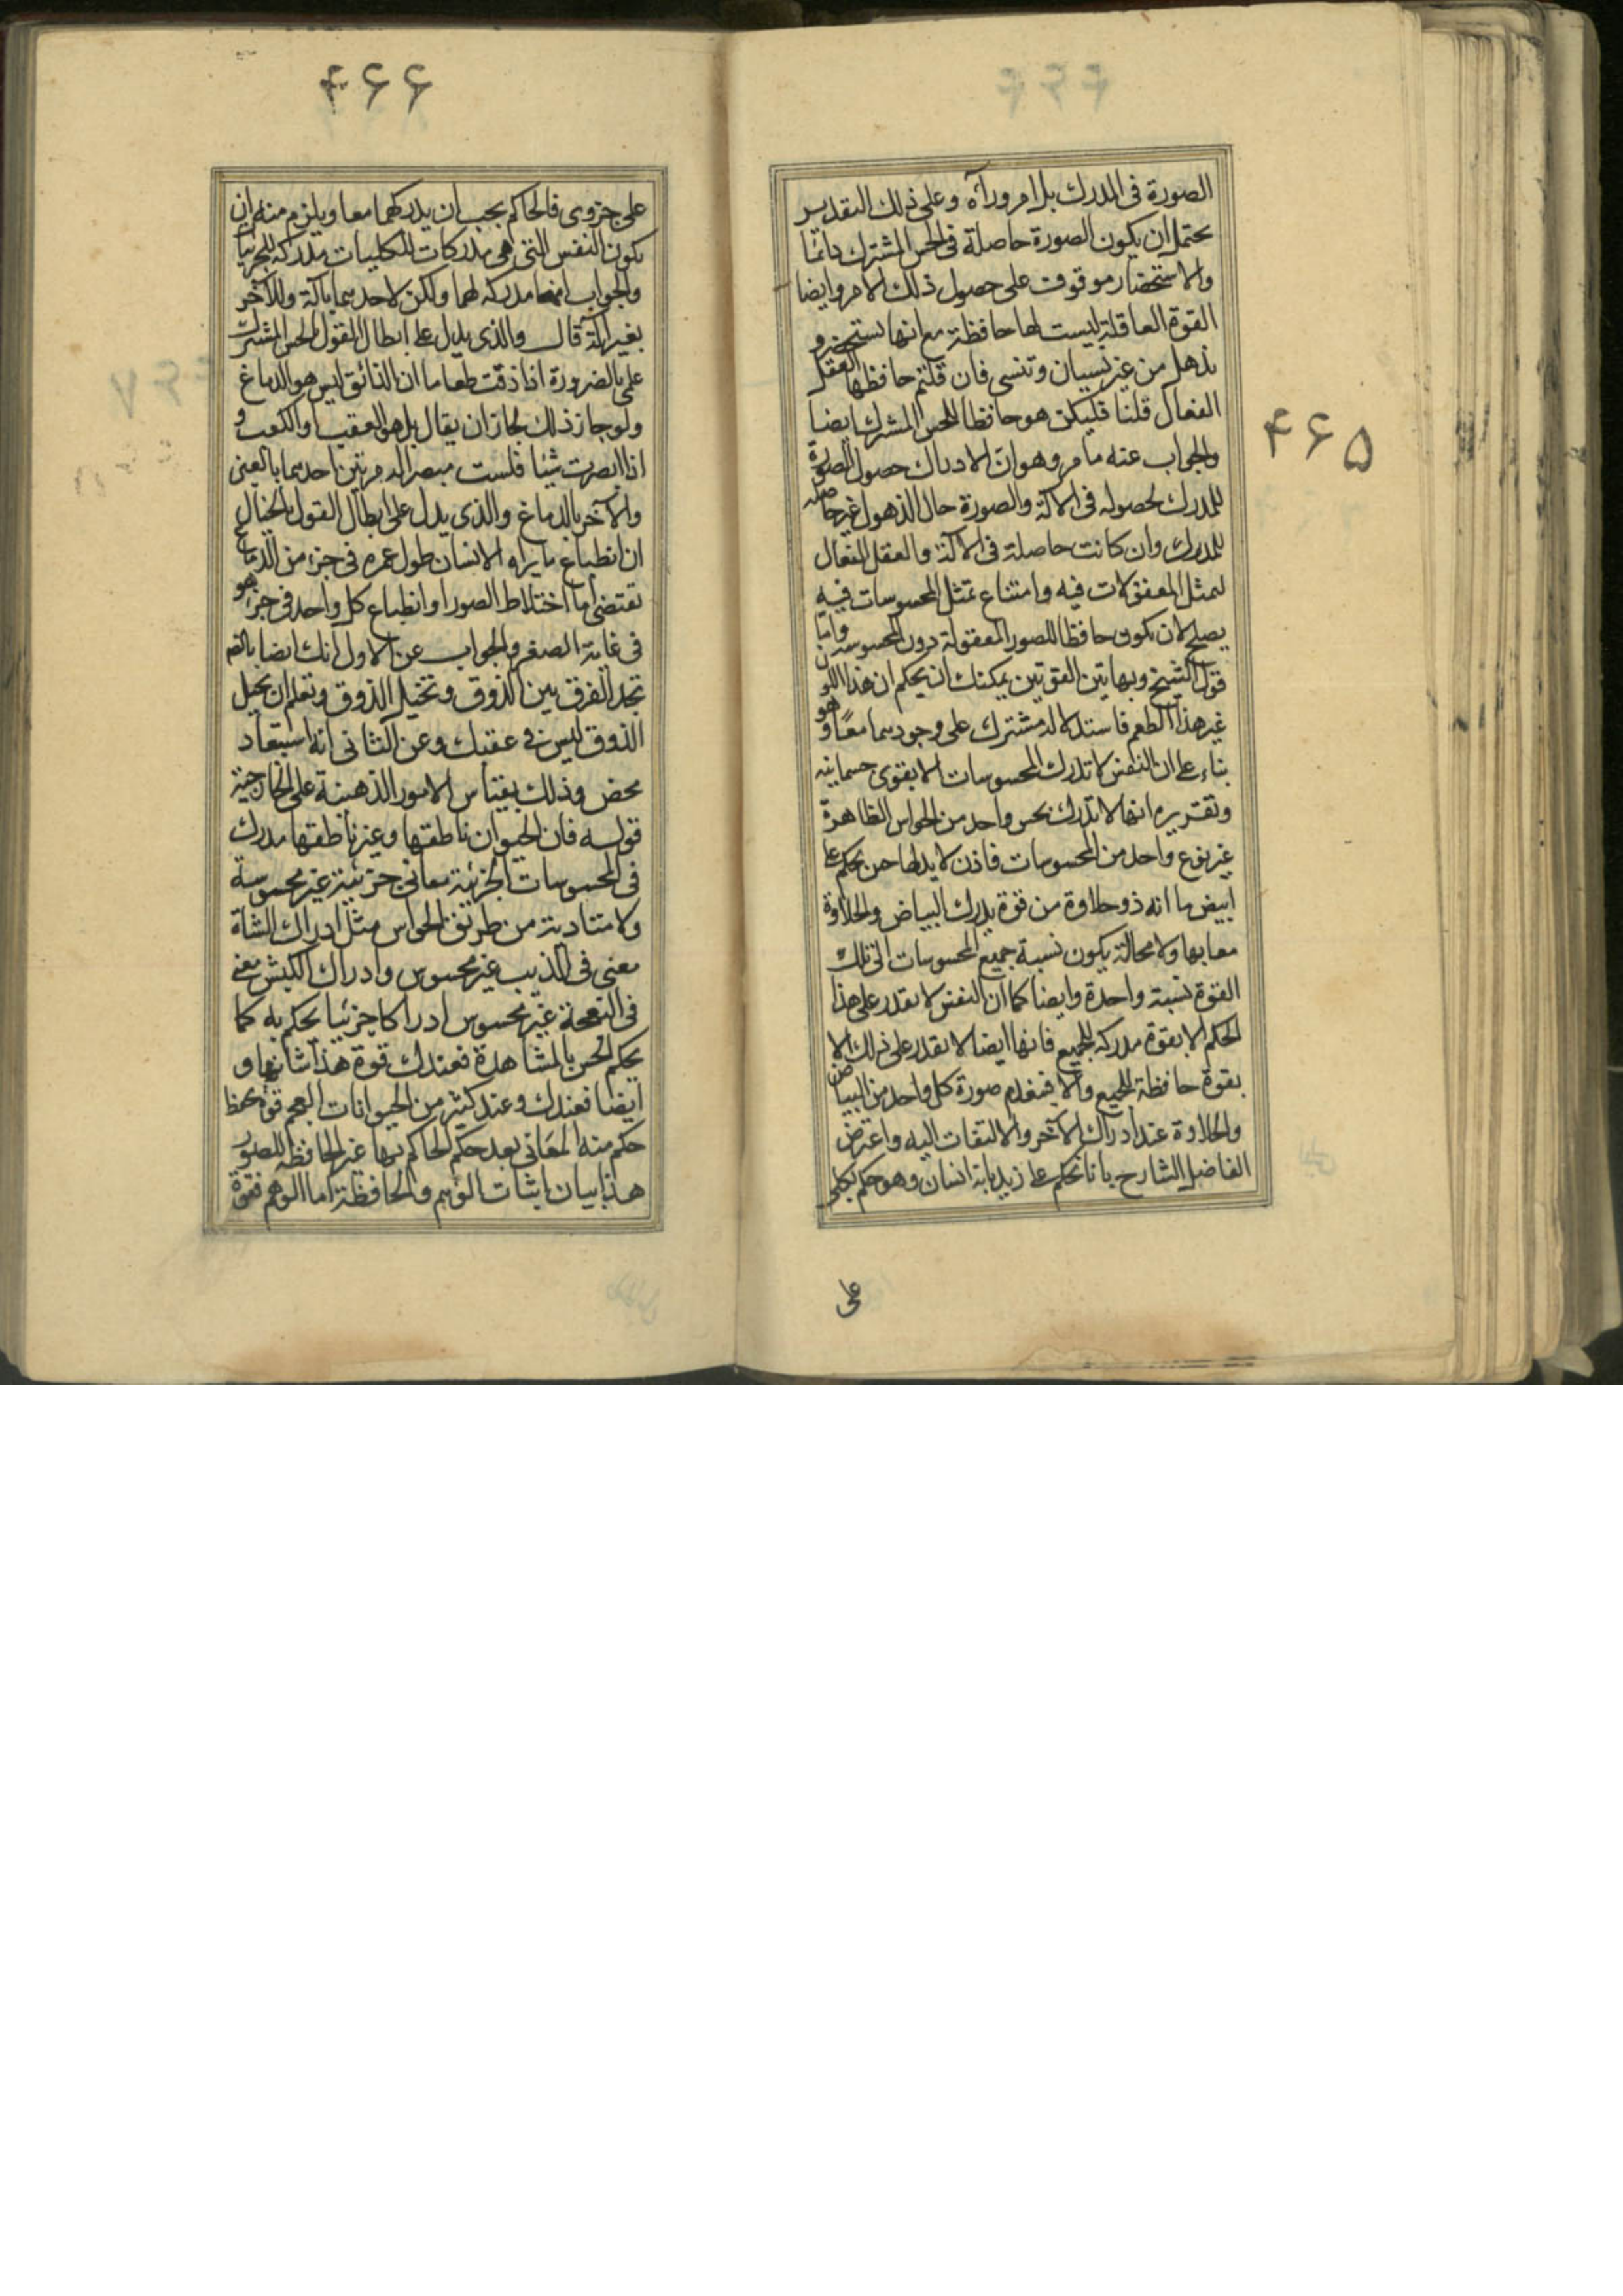 ۴۶۵
الصورة فى المدرك بل امر ورآه وعلى ذلك التقدير
يحتمل ان يكون الصورة حاصلة فى الحس المشترك دائما
والاستحضار موقوف على حصول ذلك الامر وايضا
القوة العاقلة ليست لها حافظة مع انها تستحضر و
تذهل من غير نسيان وتنسى فان قلتم حافظها العقل
الفعال قلنا فليكن هو حافظا للحس المشترك ايضا
والجواب عنه ما مر وهو ان الادراك حصول الصورة
للمدرك لحصوله فى الآلة والصورة حال الذهول غير حاصلة
للمدرك وان كانت حاصلة فى الآلة والعقل الفعال
لتمثل المعقولات فيه وامتناع تمثل المحسوسات فيه
يصلح لان يكون حافظا للصور المعقولة دون المحسوسة واما
قول الشيخ وبهاتين القوتين يمكنك ان يحكم ان هذا اللون
غير هذا الطعم فاستدلالد مشترك على وجودهما معًا وهو
بناء على ان النفس لا تدرك المحسوسات الا بقوى جسمانيه
وتقريره انها لا تدرك بحس واحد من الحواس الظاهرة
غير نوع واحد من المحسوسات فاذن لا بد لها حين يحكم على
ابيض ما انه ذو حلاوة من قوة يدرك البياض والحلاوة
معا بها ولا محالة يكون نسبة جميع المحسوسات الى تلك
القوة نسبة واحدة وايضا كما ان النفس لا تقدر على هذا
الحكم الا بقوة مدركه للجميع فانها ايضا لا تقدر على ذلك الا
بقوة حافظة للجميع والا فتنعدم صورة كل واحد من البياض
والحلاوة عند ادراك الآخر والالتفات اليه واعترض
الفاضل الشارح بانا نحكم على زيد بانه انسان وهو حكم بكلى
على
۴۶۶
على جزوى فالحاكم يجب ان يدركهما معا ويلزم منه ان
يكون النفس التى هى مدركات للكليات مدركه للجزئيات
والجواب انها مدركه لهما ولكن لاحدهما بآلة وللآخر
بغير آلة قال والذى يدل على ابطال القول بالحس المشترك
على بالضرورة اذا ذقت طعاما ان الذائق ليس هو الدماغ
ولو جاز ذلك لجاز ان يقال بل هو العقب او الكعب و
اذا ابصرت شيئا فلست مبصرا له مرتين احدهما بالعين
والآخر بالدماغ والذى يدل على ابطال القول بالخيال
ان انطباع ما يراه الانسان طول عمره فى جزء من الدماغ
تقتضى اما اختلاط الصور او انطباع كل واحد فى جزء هو
فى غاية الصغر والجواب عن الاول انك ايضا بالضرورة
تجد الفرق بين الذوق وتخيل الذوق وتعلم ان تخيل
الذوق ليس فى عقبك وعن الثانى انه استبعاد
محض وذلك بقياس الامور الذهنية على الخارجية
قوله فان الحيوان ناطقها وغير ناطقها مدرك
فى المحسوسات الجزئية معانى جزئية غير محسوسة
ولا متادية من طريق الحواس مثل ادراك الشاة
معنى فى الذيب غير محسوس وادراك الكبش معنى
فى النعجة غير محسوس ادراكا جزئيا يحكم به كما
يحكم الحس بالمشاهدة فعندك قوة هذا شانها و
ايضا فعندك وعند كثير من الحيوانات العجم قوة تحفظ
حكم منه المعانى بعد حكم الحاكم بها غير الحافظة للصور
هذا بيان اثبات الوهم والحافظة اما الوهم فقوة